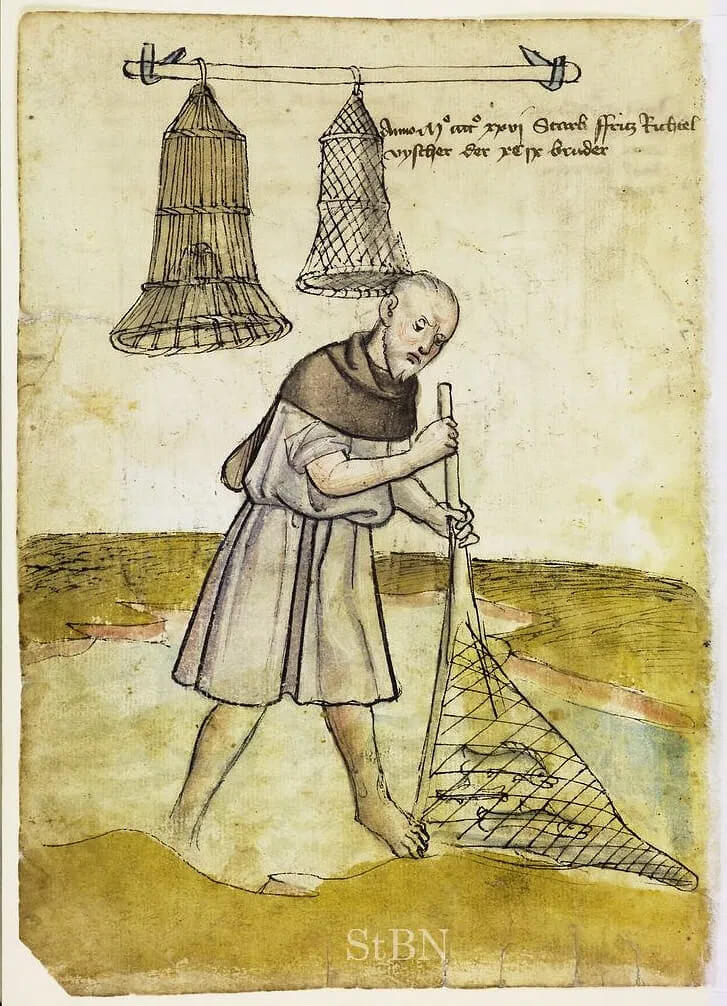 Anno Mº iiiiº xxvi Starb ffricz Richtel
vyscher der xCix bruder
StBN